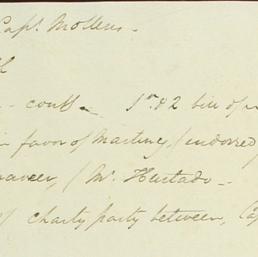 Capt. Mollens -
- coutts - 1st & 2 bill of
favor of Martinez / endorsed
/ Mr. Hurtado -
of charty party between, Cap